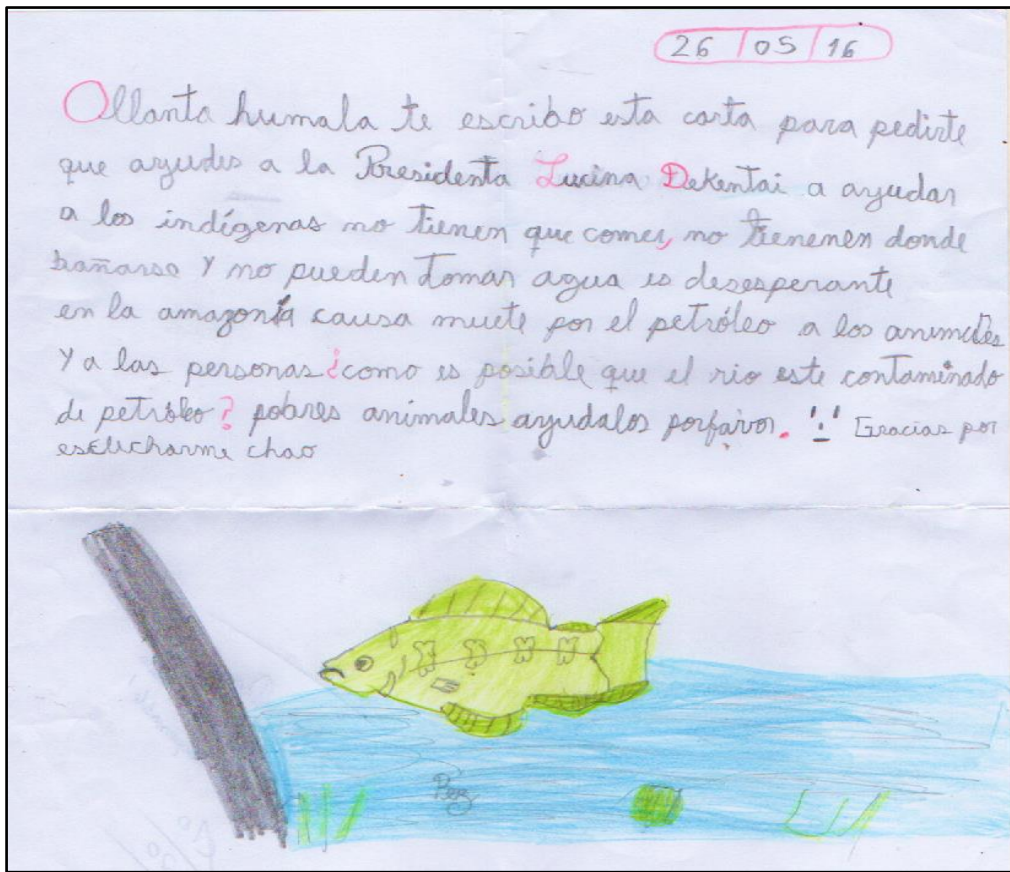 26 / 05 / 16
Ollanta humala te escribo esta carta para pedirte
que ayudes a la Presidenta Lucina Dekentai a ayudar
a los indígenas no tienen que comer, no tienenen donde
bañarse y no pueden tomar agua es desesperante
en la amazonía causa muete por el petróleo a los animales
y a las personas ¿como es posible que el rio este contaminado
de petróleo? pobres animales ayudalos porfavor. Gracias por
escucharme chao
Pez